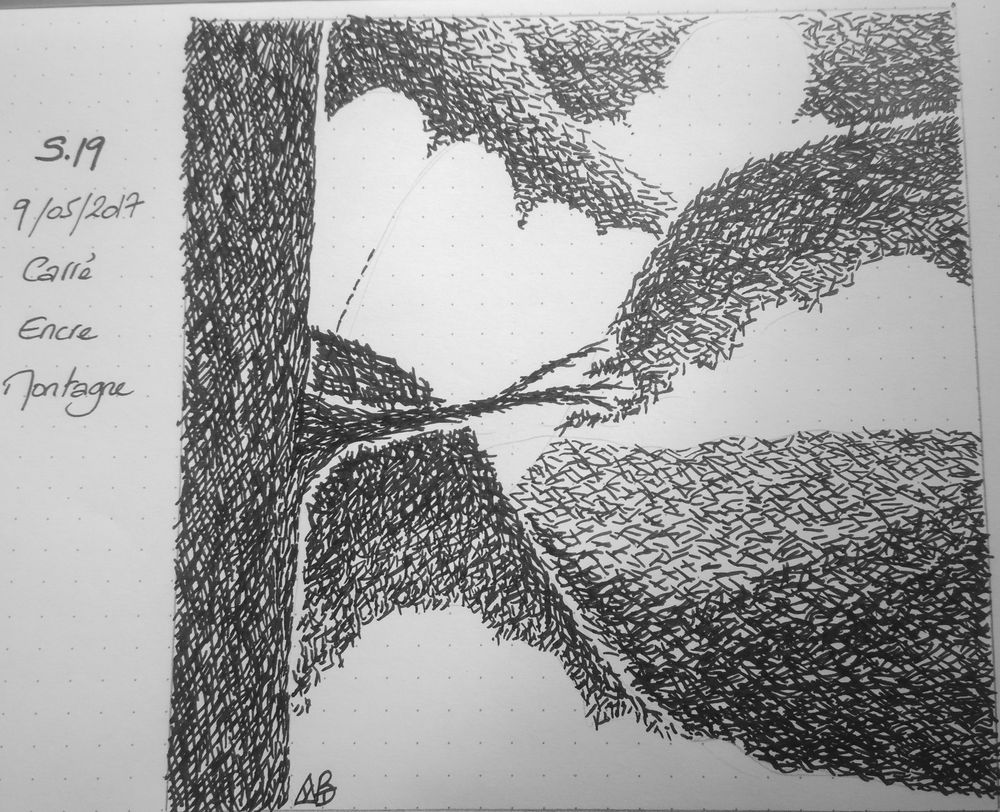 S.19
9/05/2017
Carré
Encre
Montagne